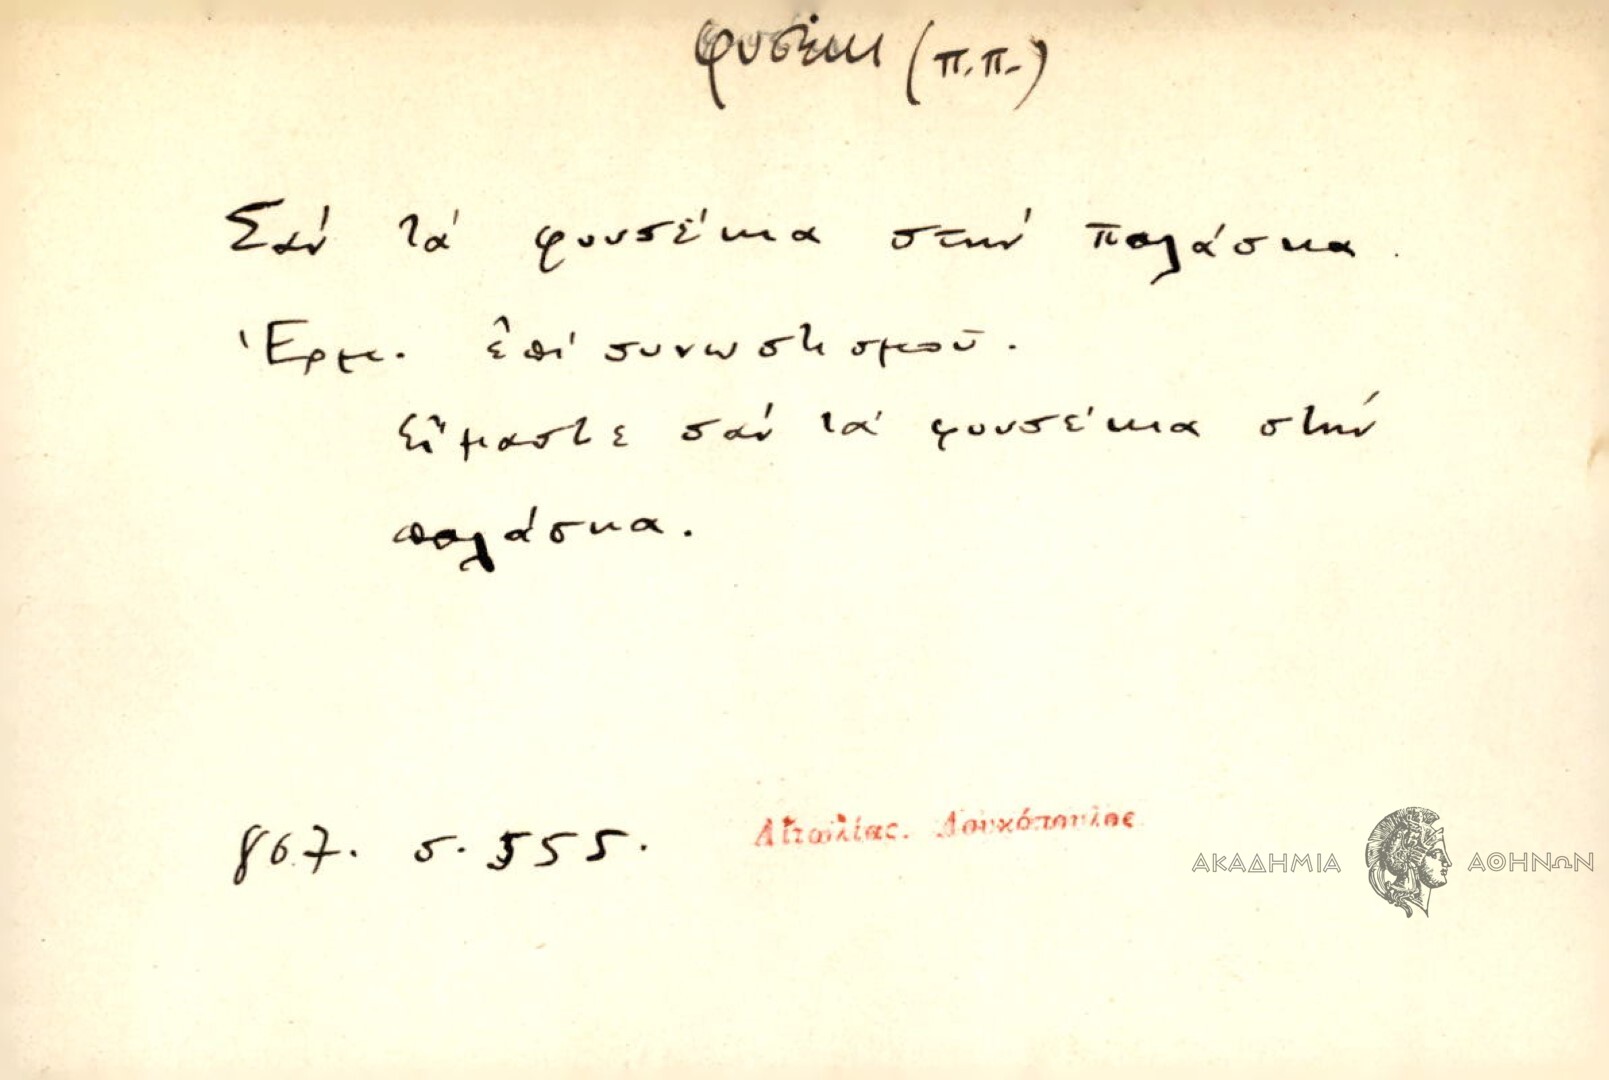 φυσέκι (π.π.)
Σάν τά φουσέκια στήν παλάσκα.
Ἑρμ. ἐπί συνωστισμοῦ.
εἴμαστε σάν τά φουσέκια στήν
παλάσκα.
867. σ. 555.
Αἰτωλίας. Λουκόπουλος
ΑΚΑΔΗΜΙΑ ΑΘΗΝΩΝ